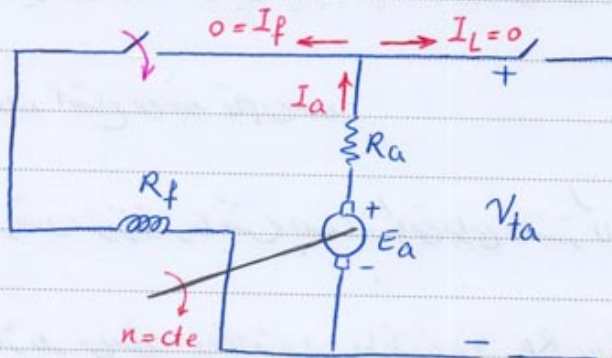 0 = I_f
I_L = 0
+
I_a
R_a
R_f
+
E_a
V_ta
-
n = cte
-